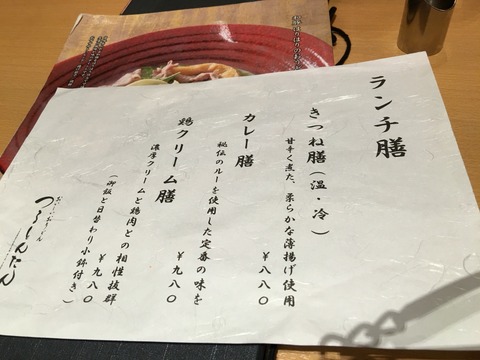 ランチ膳
きつね膳（温・冷）
甘辛く煮た、柔らかな薄揚げ使用
￥八八〇
カレー膳
秘伝のルーを使用した定番の味を
￥九八〇
鶏クリーム膳
濃厚クリームと鶏肉との相性抜群
￥九八〇
（御飯と日替わり小鉢付き）
つるとんたん